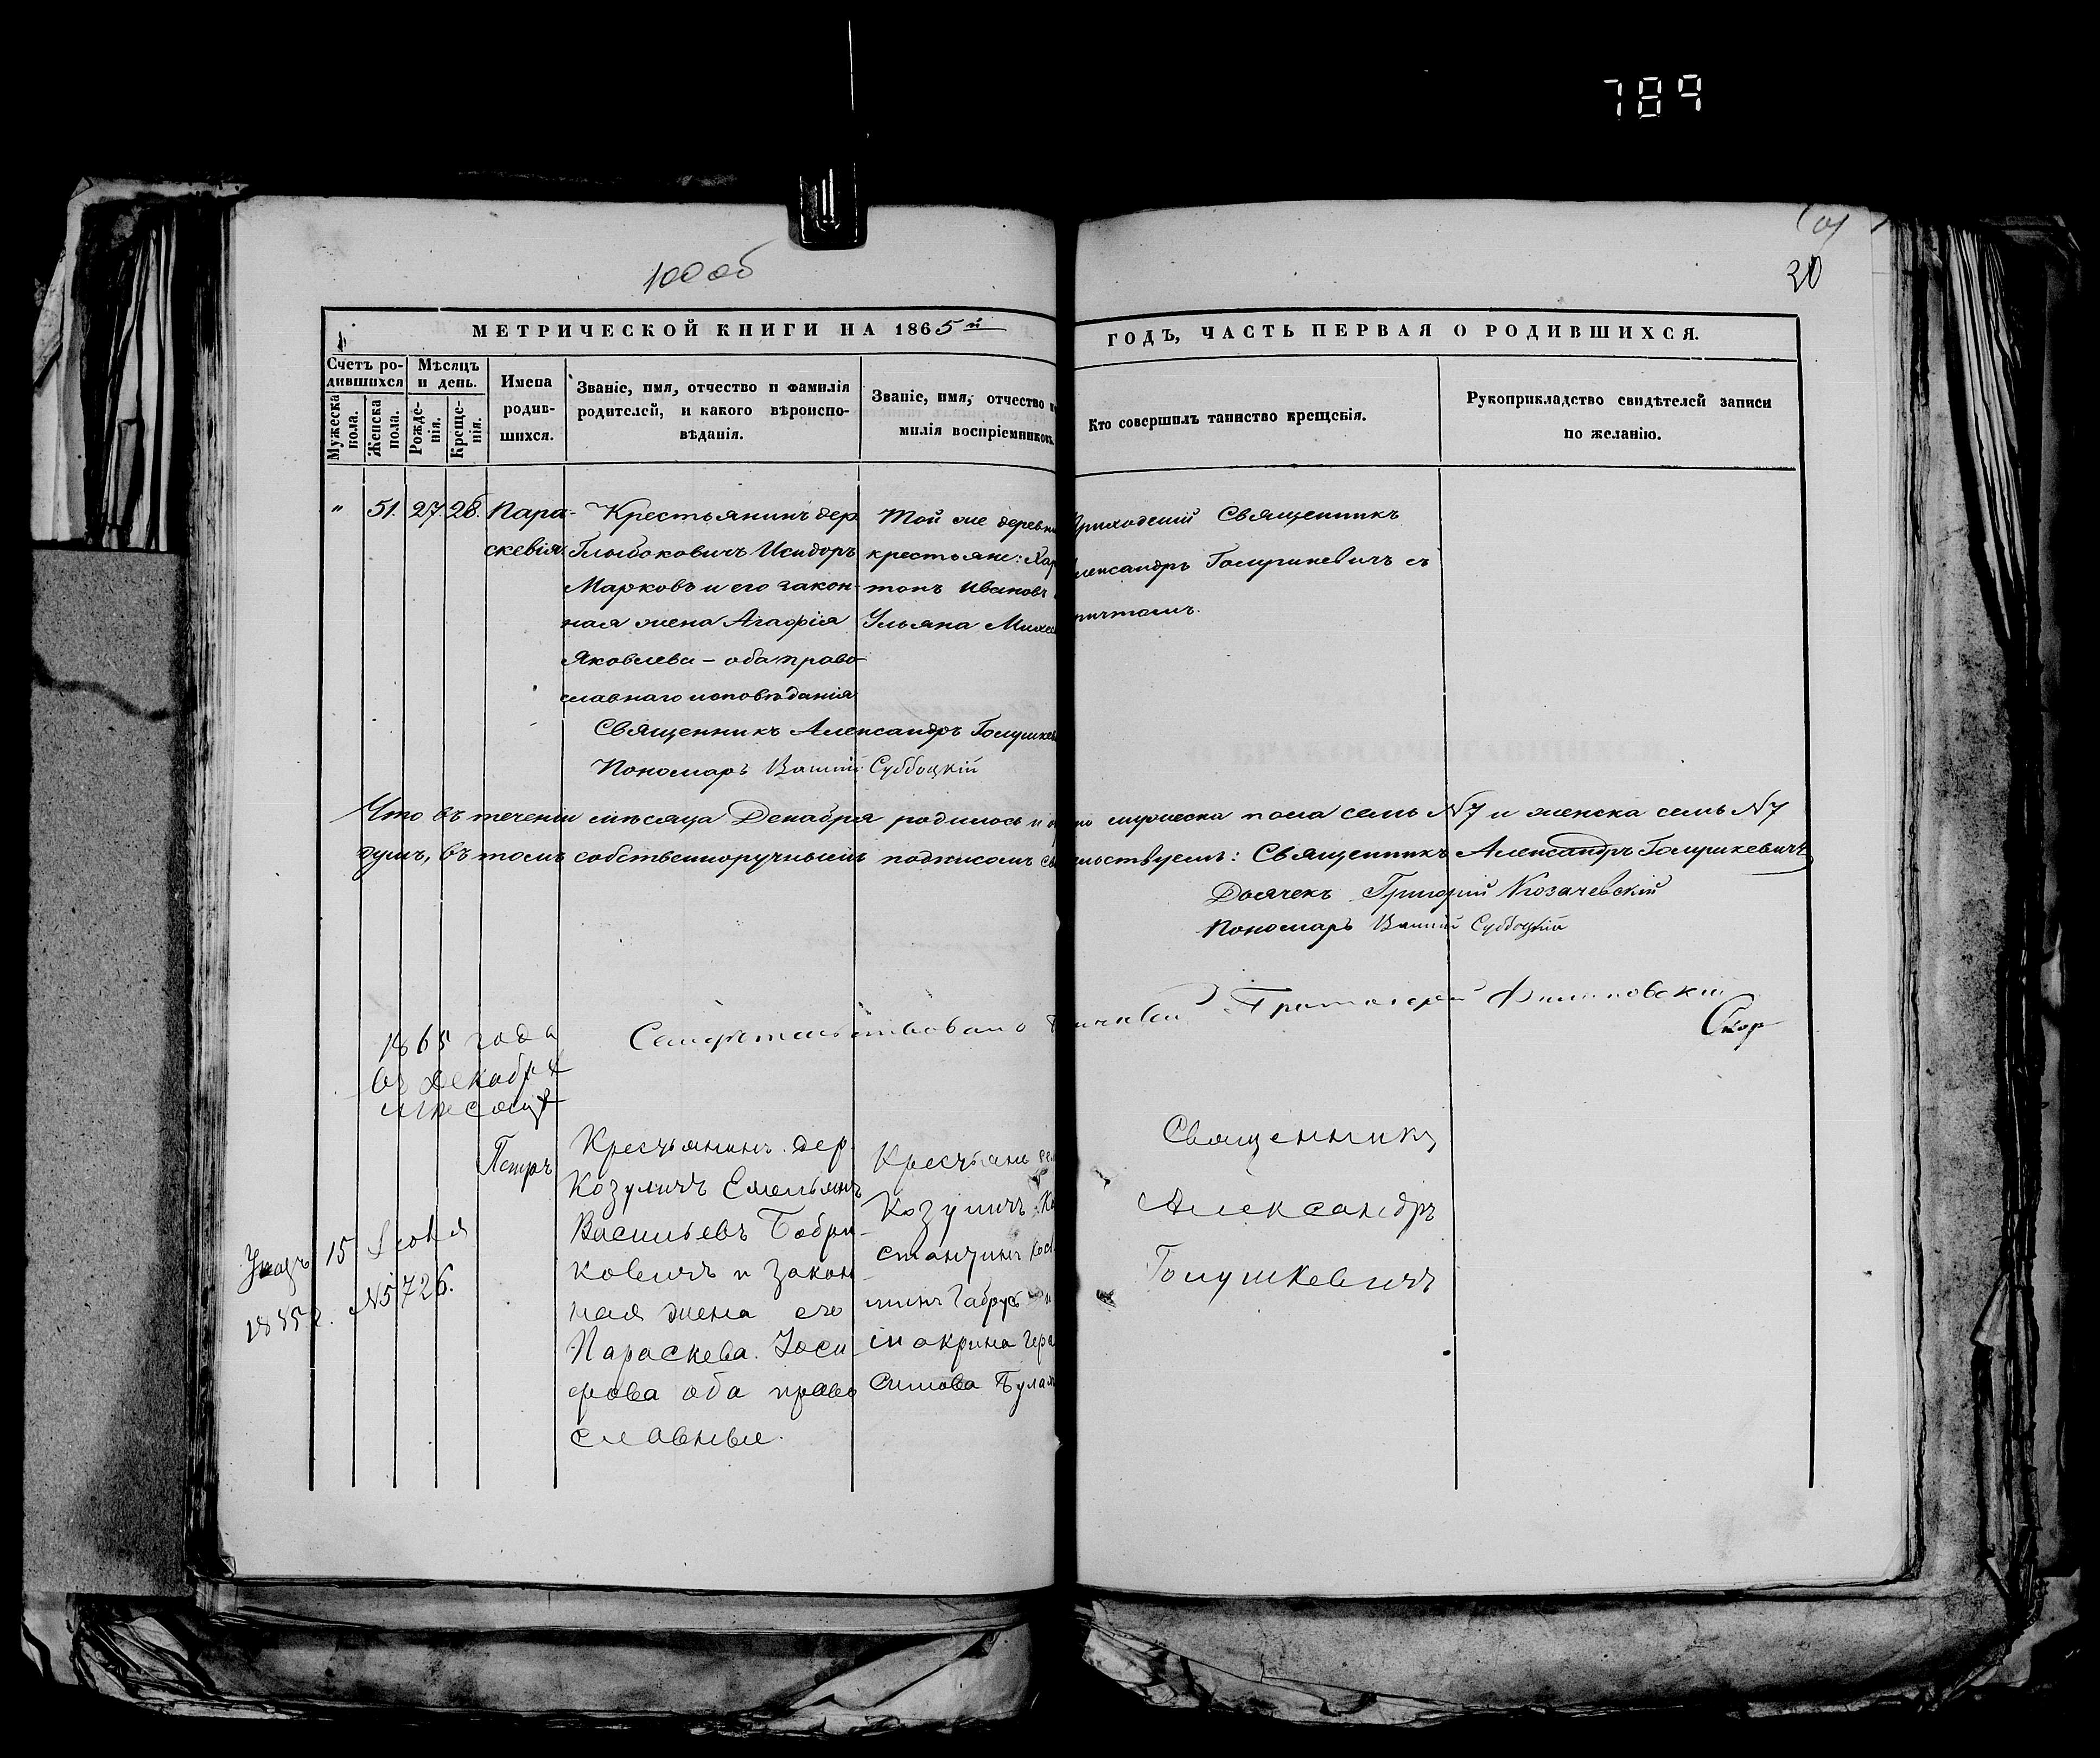 789
20
100 об
МЕТРИЧЕСКОЙ КНИГИ НА 1865 й ГОДЪ, ЧАСТЬ ПЕРВАЯ О РОДИВШИХСЯ.
Счетъ родившихся
Мужеска пола.
Женска пола.
Мѣсяцъ и день.
Рожденія.
Крещенія.
Имена родившихся.
Званіе, имя, отчество и фамилія
родителей, и какого вѣроиспо-
вѣданія.
Званіе, имя, отчество
милія воспріемниковъ.
Кто совершилъ таинство крещенія.
Рукоприкладство свидѣтелей записи
по желанію.
" 51. 27. 28.
Пара-
скевія
Крестьянинъ дер.
Глыбоковичъ Исидоръ
Марковъ и его закон-
ная жена Агафія
Яковлева – оба право-
славнаго исповѣданія
Той же деревни
крестьяне: Хар
тонъ Ивановъ
Ульяна Михе
Приходскій Священникъ
Александръ Голушкевичъ съ
причтомъ.
Священникъ Александръ Голушкев
Пономарь Суббоцкій
Что въ теченіи мѣсяца Декабря родилось и мужеска пола семь №7 и женска семь №7
душъ, въ томъ собственноручнымъ подписомъ свидѣтельствуемъ: Священникъ Александръ Голушкевичъ
Дьячекъ Григорій Козачевскій
Пономарь Суббоцкій
Свидѣтельствовано
1865 года
въ декабрѣ
мѣсяцѣ
Указъ 15 Іюня
№5726.
Петръ
Крестьянинъ дер.
Козуличъ Емельянъ
Васильевъ Бобри-
ковичъ и закон-
ная жена его
Параскева Іоси-
фова оба право-
славные.
Крестьяне
Козуличъ: Ко
стантинъ
Габрусь и
Макрина Гера
симова Була
Священникъ
Александръ
Голушкевичъ